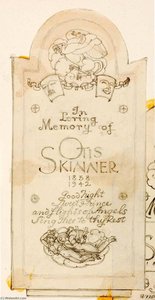 In Loving
Memory of
Otis
SKINNER
1858
1942
Good Night
Sweet Prince
and flights of Angels
Sing thee to thy Rest